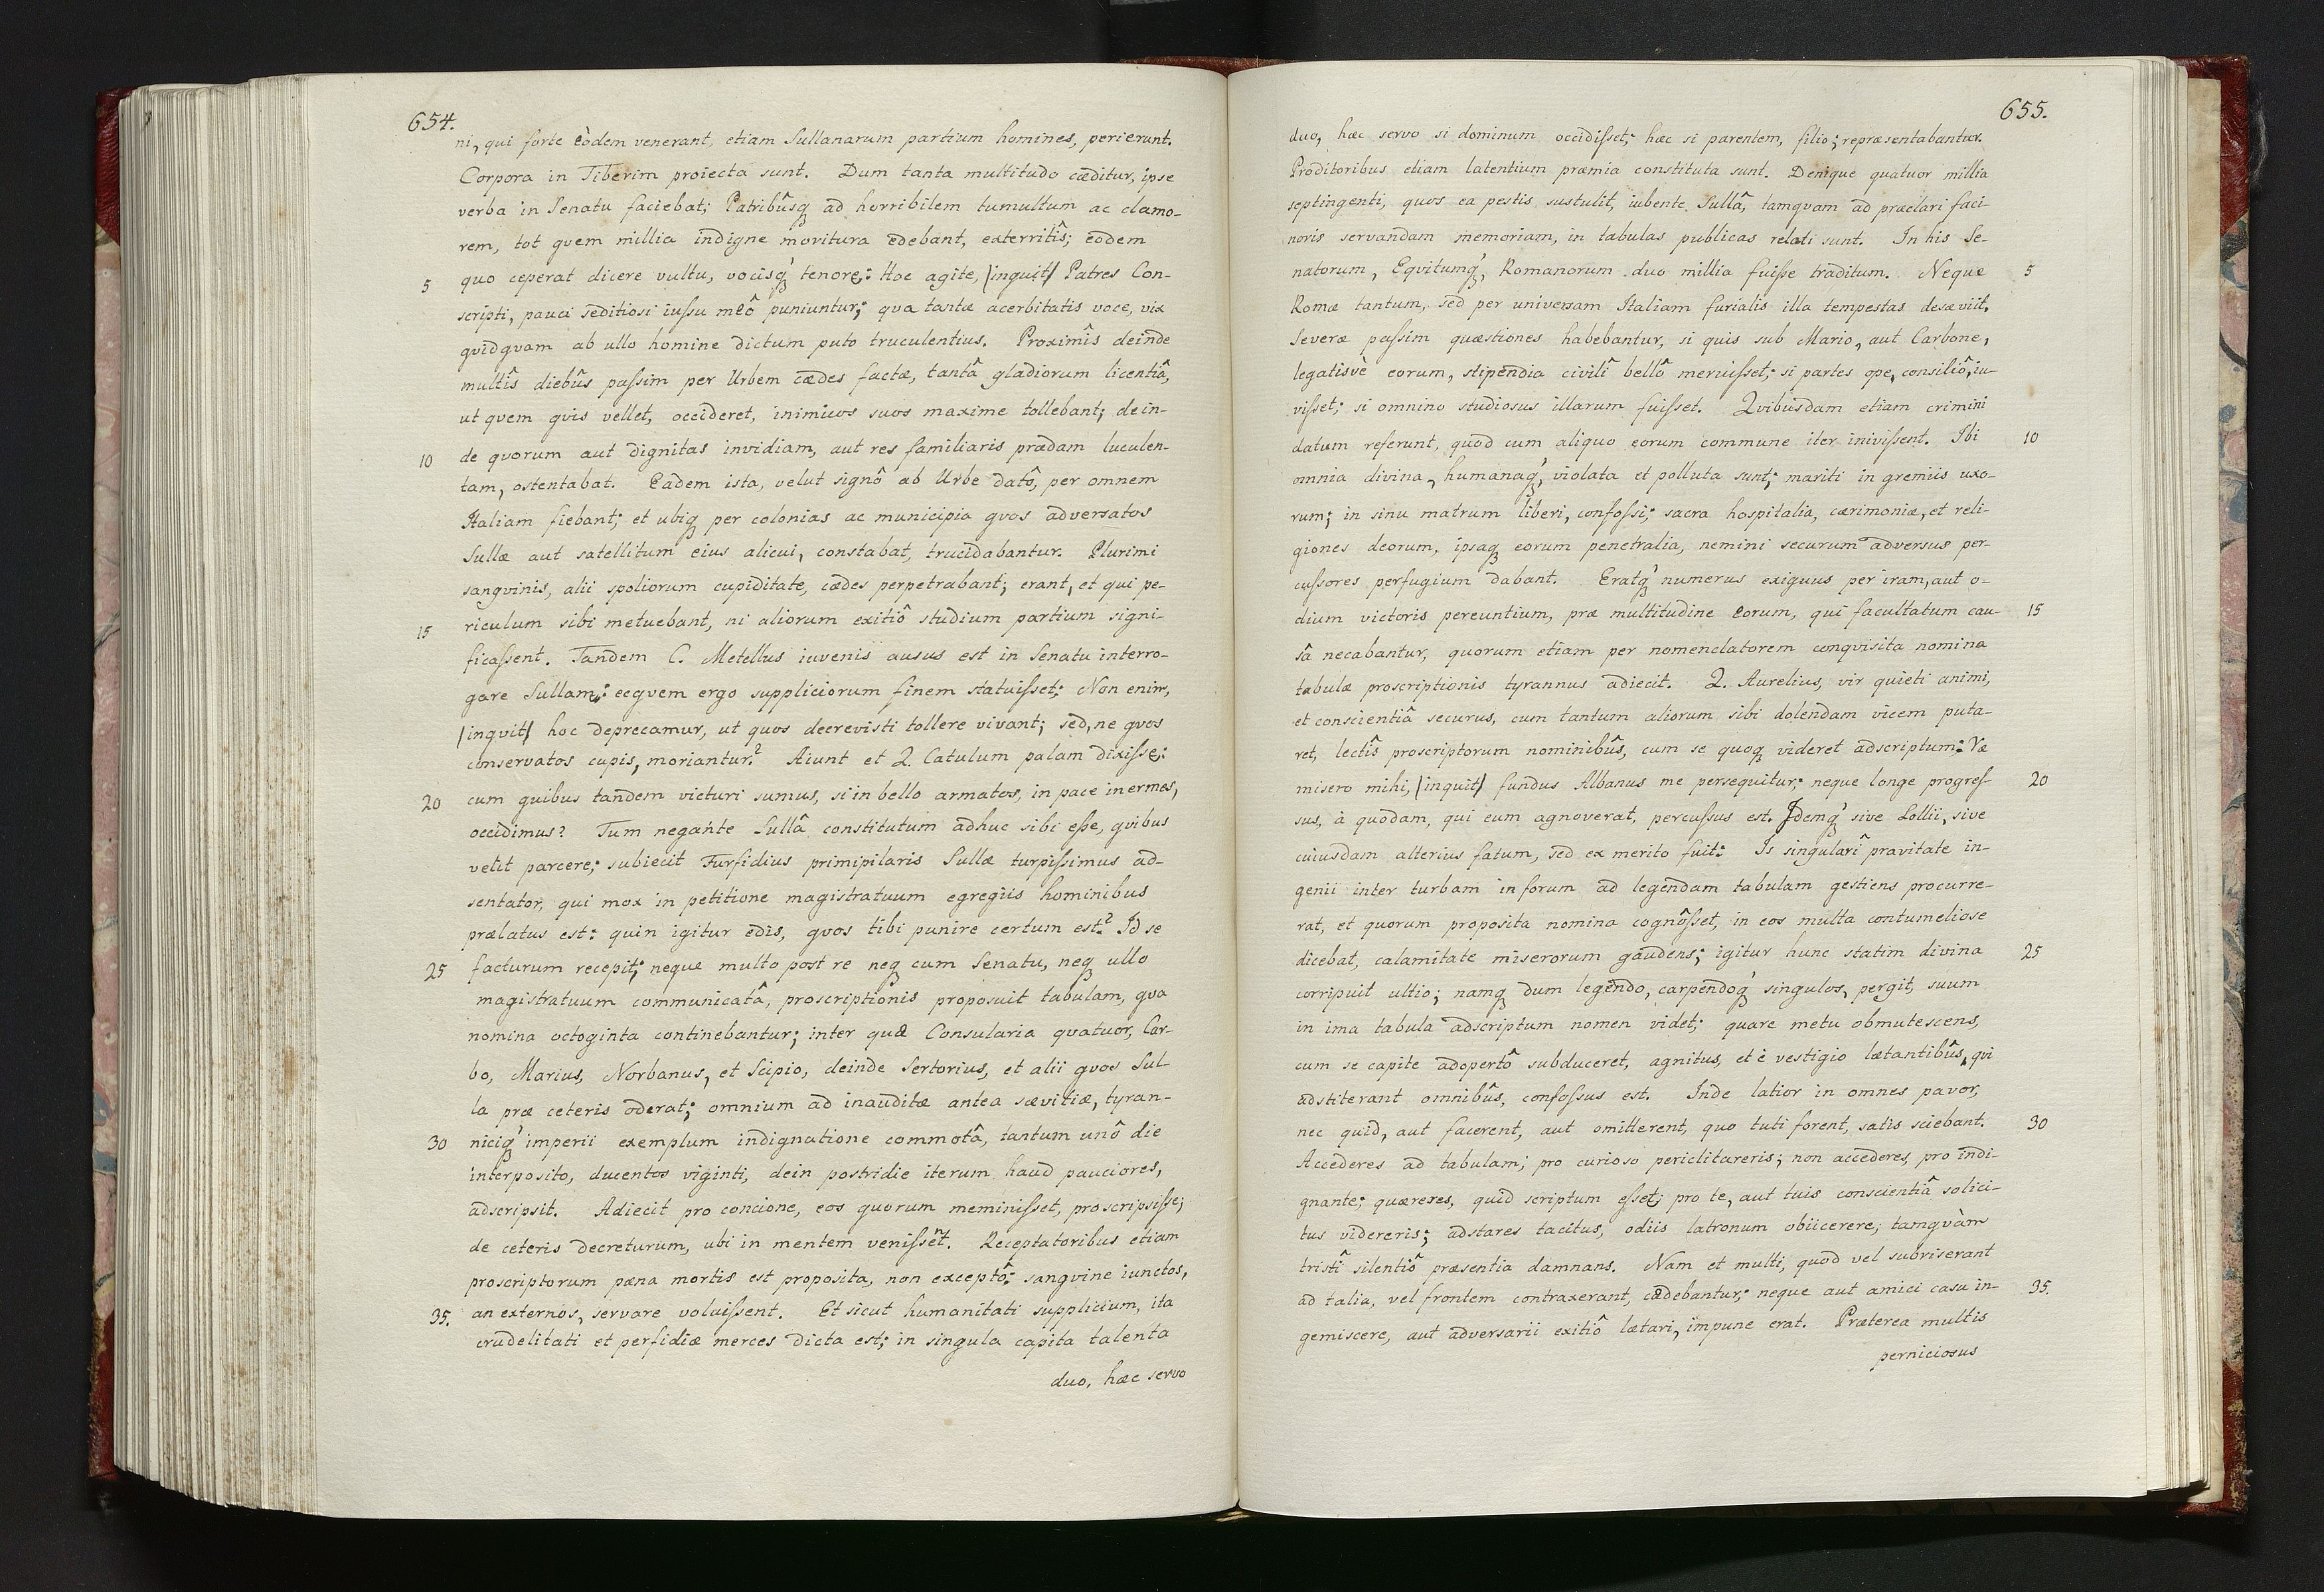 654.
ni, qui forte eòdem venerant, etiam Sullanarum partium homines, perierunt.
Corpora in Tiberim proiecta sunt. Dum tanta multitudo cæditur, ipse
verba in Senatu faciebat; Patribûsq́ꝫ ad horribilem tumultum ac clamo-
rem, tot quem millia indigne moritura edebant, exterritîs; eodem
5 quo ceperat dicere vultu, vocisq́ꝫ tenore: Hoc agite, /inquit/ Patres Con-
scripti, pauci seditiosi iuſsu meô puniuntur; qva tantæ acerbitatis voce, vix
qvidqvam ab ullo homine dictum puto truculentius. Proximîs deinde
multîs diebûs paſsim per Urbem cædes factæ, tantâ gladiorum licentiâ,
ut qvem qvis vellet, occideret, inimicos suos maxime tollebant; dein-
10 de qvorum aut dignitas invidiam, aut res familiaris prædam luculen-
tam, ostentabat. Eadem ista, velut signô ab Urbe datô, per omnem
Italiam fiebant; et ubiqꝫ per colonias ac municipia qvos adversatos
Sullæ aut satellitum eius alicui, constabat, trucidabantur. Plurimi
sangvinis, alii spoliorum cupiditate, cædes perpetrabant; erant, et qui pe-
15 riculum sibi metuebant, ni aliorum exitiô studium partium signi-
ficaſsent. Tandem C. Metellus iuvenis ausus est in Senatu interro-
gare Sullam: ecqvem ergo suppliciorum finem statuiſset; Non enim,
/inquit/ hoc deprecamur, ut quos decrevisti tollere vivant; sed, ne qvos
conservatos cupis, moriantur? Aiunt et Q. Catulum palam dixiſse:
20 cum quibus tandem victuri sumus, si in bello armatos, in pace inermes,
occidimus? Tum negante Sullâ, constitutum adhuc sibi eſse, qvibus
velit parcere; subiecit Furfidius primipilaris Sullæ turpiſsimus ad-
sentator, qui mox in petitione magistratuum egregiis hominibus
prælatus est: quin igitur edis, qvos tibi punire certum est? Id se
25 facturum recepit; neque multo post re neqꝫ cum Senatu, neqꝫ ullo
magistratuum communicatâ, proscriptionis proposuit tabulam, qva
nomina octoginta continebantur; inter quæ Consularia qvatuor, Car-
bo, Marius, Norbanus, et Scipio, deinde Sertorius, et alii qvos Sul-
la præ ceteris oderat; omnium ad inauditæ antea sævitiæ, tyran-
30 niciq́ꝫ imperii exemplum indignatione commotâ, tantum unô die
interposito, ducentos viginti, dein postridie iterum haud pauciores,
adscripsit. Adiecit pro concione, eos quorum meminiſset, proscripsiſse;
de ceteris decreturum, ubi in mentem veniſsent. Receptatoribus etiam
proscriptorum pæna mortis est proposita, non exceptô; sangvine iunctos,
35. an externos, servare voluiſsent. Et sicut humanitati supplicium, ita
crudelitati et perfidiæ merces dicta est; in singula capita talenta
duo, hæc servo
655.
duo, hæc servo si dominum occidiſset; hæc si parentem, filio; repræsentabantur.
Proditoribus etiam latentium præmia constituta sunt. Denique quatuor millia
septingenti, quos ea pestis sustulit, iubente Sullâ, tamqvam ad præclari faci-
noris servandam memoriam, in tabulas publicas relati sunt. In his Se-
natorum, Eqvitumq́ꝫ, Romanorum duo millia fuiſse traditum. Neque 5
Romæ tantum, sed per universam Italiam furialis illa tempestas desæviit.
Severæ paſsim quæstiones habebantur, si quis sub Mario, aut Carbone,
legatisvè eorum, stipendia civilî bellô meruiſset; si partes ope, consiliô, iu-
viſset; si omnino studiosus illarum fuiſset. Qvibusdam etiam crimini
datum referunt, quod cum aliquo eorum commune iter iniviſsent. Ibi 10
omnia divina, humanaq́ꝫ, violata et polluta sunt; mariti in gremiis uxo-
rum; in sinu matrum liberi, confoſsi; sacra hospitalia, cærimoniæ, et reli-
giones deorum, ipsaqꝫ eorum penetralia, nemini securum adversus per-
cuſsores perfugium dabant. Eratq́ꝫ numerus exiguus per iram, aut o-
dium victoris pereuntium, præ multitudine eorum, qui facultatum cau- 15
sâ necabantur, quorum etiam per nomenclatorem conqvisita nomina
tabulæ proscriptionis tyrannus adiecit. Q. Aurelius, vir quieti animi,
et conscientiâ securus, cum tantum aliorum sibi dolendam vicem puta-
ret, lectîs proscriptorum nominibûs, cum se quoqꝫ videret adscriptum: Væ
misero mihi, /inquit/ fundus Albanus me persequitur; neque longe progreſ- 20
sus, à quodam, qui eum agnoverat, percuſsus est. Idemq́ꝫ sive Lollii, sive
cuiusdam alterius fatum, sed ex merito fuit: Is singularî pravitate in-
genii inter turbam in forum ad legendam tabulam gestiens procurre-
rat, et quorum proposita nomina cognôſset, in eos multa contumeliose
dicebat, calamitate miserorum gaudens; igitur hunc statim divina 25
corripuit ultio; namqꝫ dum legendo, carpendoq́ꝫ singulos, pergit, suum
in ima tabula adscriptum nomen videt; quare metu obmutescens,
cum se capite adopertô subduceret, agnitus, et è vestigio lætantibûs, qvi
adstiterant omnibûs, confoſsus est. Inde latior in omnes pavor,
nec quid, aut facerent, aut omitterent, quo tuti forent, satis sciebant. 30
Accederes ad tabulam; pro curioso periclitareris; non accederes, pro indi-
gnante; quæreres, quid scriptum eſset; pro te, aut tuis conscientiâ solici-
tus videreris; adstares tacitus, odiis latronum obiicerere; tamqvàm
tristî silentiô præsentia damnans. Nam et multi, quod vel subriserant
ad talia, vel frontem contraxerant, cædebantur; neque aut amici casu in- 35.
gemiscere, aut adversarii exitiô lætari, impune erat. Præterea multis
perniciosus